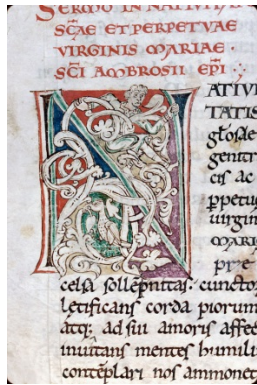 SERMO IN NATIVIT
SCAE ET PERPETVAE
VIRGINIS MARIAE ·
SCI AMBROSII EPI
NATIVI
TATIS
glosae
genitr
cis ac
ppetu
uirgin
MARI
pre
celsa sollepnitas· cuncto
letificans corda piorum
atq; ad sui amoris affec
inuitans mentes humili
conteplari nos ammonet